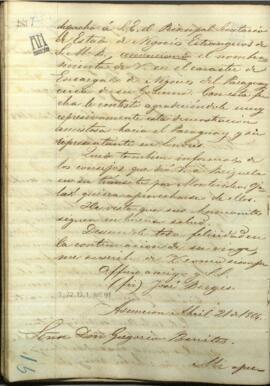 despacho á S.E. el Principal Secretario
de Estado de Negocios Extrangeros de
S.M.B., anunciando el nombra-
miento de V. en el caracter de
Encargado de Negocios del Paraguay
cerca de su Gobierno. Con esta fecha
le contesto agradeciendole muy
espresivamente esta demostracion
amistosa hacia el Paraguay y su
representante en Londres.
Quedo tambien informado de
los consejos que dió V. a
en su tránsito por Montevideo, Ojalá
quiera aprovecharse de ellos.
Celebro que sus hermanitos
siguen en buena salud.
Deseando toda felicidad en
la continuacion de su viage
me suscribo de V. como siempre
affmo amigo y S.S.
(fdo) José Berges
Asuncion Abril 21 de 1864.
Señor Don Gregorio Benites.